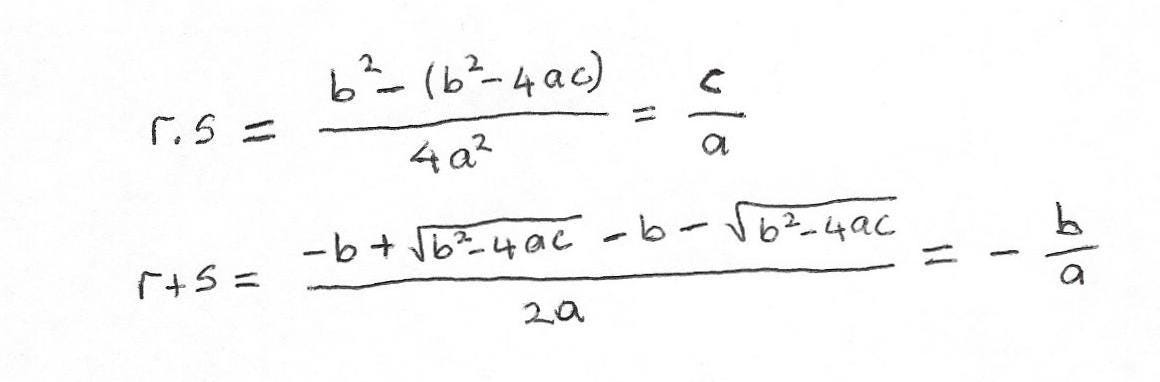 r.s = \frac{b^2-(b^2-4ac)}{4a^2} = \frac{c}{a}
r+s = \frac{-b+\sqrt{b^2-4ac}-b-\sqrt{b^2-4ac}}{2a} = -\frac{b}{a}